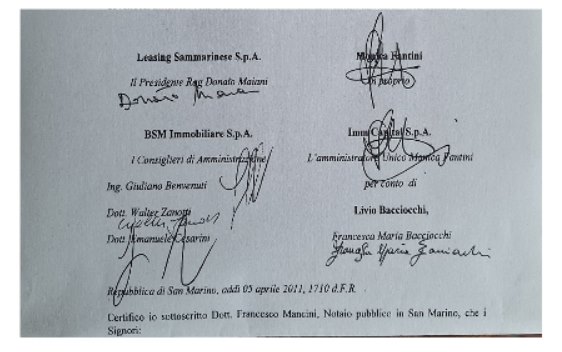 Leasing Sammarinese S.p.A.
Il Presidente Rag Donato Maiani
Donato Maiani
BSM Immobiliare S.p.A.
I Consiglieri di Amministrazione
Ing. Giuliano Benvenuti
Dott. Walter Zanotti
Walter Zanotti
Dott. Emanuele Cesarini
Monica Fantini
in proprio
Imm Capital S.p.A.
L'amministratore Unico Monica Fantini
per conto di
Livio Bacciocchi,
Francesca Maria Bacciocchi
Repubblica di San Marino, addì 05 aprile 2011, 1710 d.F.R.
Certifico io sottoscritto Dott. Francesco Mancini, Notaio pubblico in San Marino, che i
Signori: